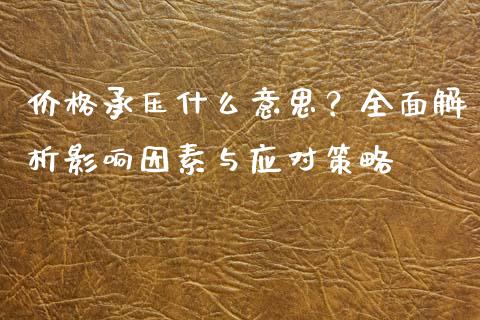 价格承压什么意思？全面解
析影响因素与应对策略